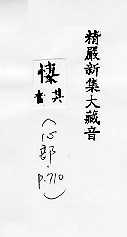 精嚴新集大藏音
其
(心部.
p.710)